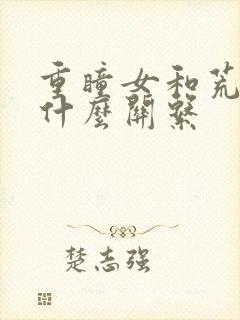 重瞳女和荒
什麼關繫
楚志强